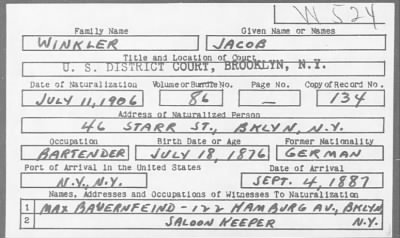 W 524
Family Name Given Name or Names
WINKLER JACOB
Title and Location of Court
U. S. DISTRICT COURT, BROOKLYN, N.Y.
Date of Naturalization Volume or Bundle No. Page No. Copy of Record No.
JULY 11, 1906 86 — 134
Address of Naturalized Person
46 STARR ST., BKLYN, N.Y.
Occupation Birth Date or Age Former Nationality
BARTENDER JULY 18, 1876 GERMAN
Port of Arrival in the United States Date of Arrival
N.Y., N.Y. SEPT. 4, 1887
Names, Addresses and Occupations of Witnesses To Naturalization
1 MAX BAUERNFEIND - 122 HAMBURG AV., BKLYN
2 SALOON KEEPER N.Y.